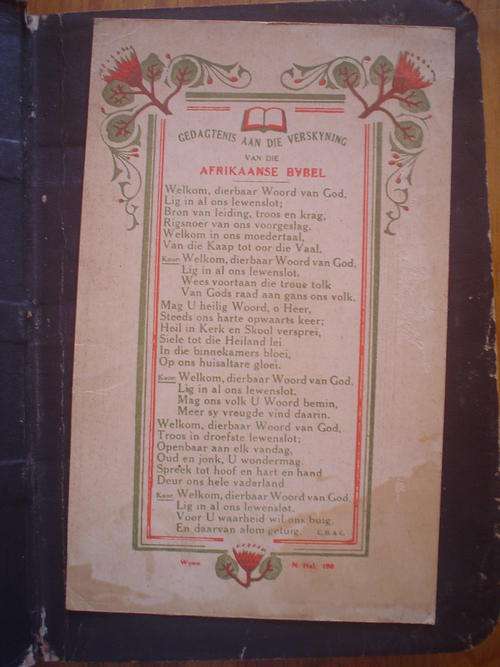 GEDAGTENIS AAN DIE VERSKYNING
VAN DIE
AFRIKAANSE BYBEL
Welkom, dierbaar Woord van God,
Lig in al ons lewenslot;
Bron van leiding, troos en krag,
Rigsnoer van ons voorgeslag.
Welkom in ons moedertaal,
Van die Kaap tot oor die Vaal.
Koor: Welkom, dierbaar Woord van God,
Lig in al ons lewenslot.
Wees voortaan die troue tolk
Van Gods raad aan gans ons volk.
Mag U heilig Woord, o Heer,
Steeds ons harte opwaarts keer;
Heil in Kerk en Skool versprei,
Siele tot die Heiland lei.
In die binnekamers bloei,
Op ons huisaltare gloei.
Koor: Welkom, dierbaar Woord van God,
Lig in al ons lewenslot.
Mag ons volk U Woord bemin,
Meer sy vreugde vind daarin.
Welkom, dierbaar Woord van God,
Troos in droefste lewenslot;
Openbaar aan elk vandag,
Oud en jonk, U wondermag.
Spreek tot hoof en hart en hand
Deur ons hele vaderland
Koor: Welkom, dierbaar Woord van God,
Lig in al ons lewenslot.
Voor U waarheid wil ons buig,
En daarvan alom getuig.
Wysie N. Hal. 198